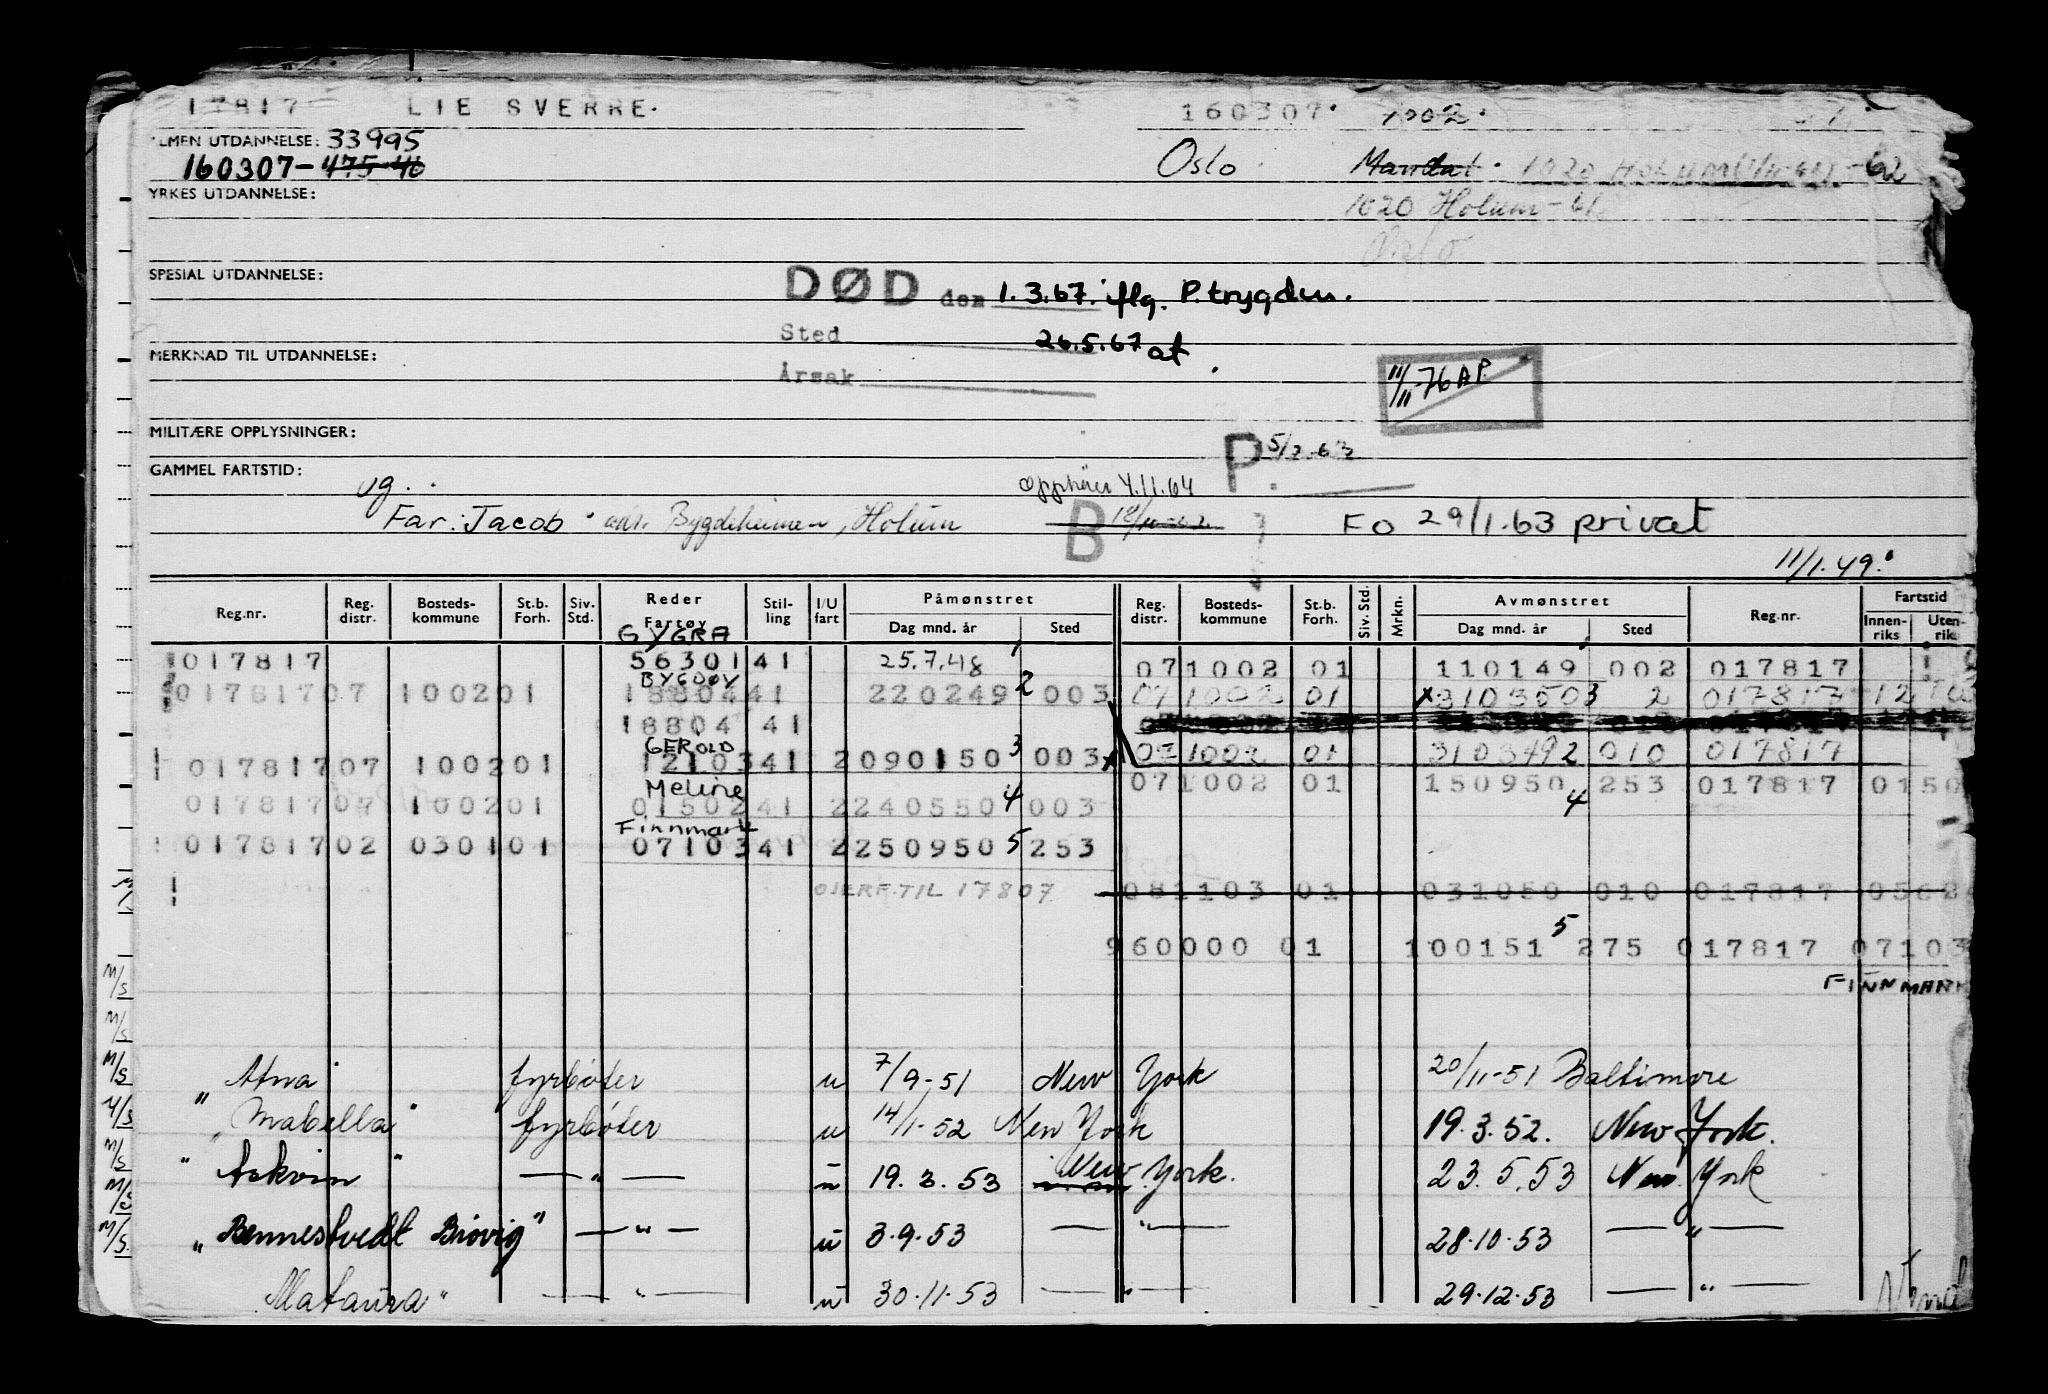 17817 LIE SVERRE. 160307. 7002.
LMEN UTDANNELSE: 33995
160307-475-40 Oslo Mandal. 1020 -62
YRKES UTDANNELSE: 1020 Holum-61
Oslo
SPESIAL UTDANNELSE: DØD den 1.3.67. iflg. P.trygden.
Sted 26.5.67 at
MERKNAD TIL UTDANNELSE: Årsak 11/11-76 AP.
MILITÆRE OPPLYSNINGER: P 5/2-63
GAMMEL FARTSTID:
ug. opphører 4.11.64
Far: Jacob adr. Bygdeheimen, Holum B FO 29/1.63 privat
11/1.49.
Reg.nr. Reg. distr. Bosteds- kommune St.b. Forh. Siv. Std. Reder Fartøy Stil- ling I/U fart Påmønstret Dag mnd. år Sted Reg. distr. Bosteds- kommune St.b. Forh. Siv. Std. Mrkn. Avmønstret Dag mnd. år Sted Reg.nr. Fartstid Innen- riks Uten- rik
GYGRA
017817 56301 41 25.7.48 1 07 1002 01 110149 002 017817
BYGDØY
017817 07 1002 01 18804 41 220249 2 003 07 1002 01 x3103503 2 017817 12
18804 41
GEROLD
017817 07 1002 01 12103 41 2 090150 3 003 x 07 1002 01 310349 2 010 017817
Meline
017817 07 1002 01 01502 41 2 240550 4 003 07 1002 01 150950 4 253 017817 0150
Finnmark
017817 02 0301 01 07103 41 2 250950 5 253
OVERF. TIL 17807 08 1103 01 031050 010 017817 0568
960000 01 100151 5 275 017817 07103
FINNMARK
M/S
M/S
M/S " Atna " fyrbøter u 7/9-51 New York 20/11-51 Baltimore
M/S " Mabella " fyrbøter u 14/1-52 New York 19.3.52. New York.
M/S " Askvin " — " — u 19.3.53 New York. 23.5.53 New York
M/S
M/S " Bennestvedt Brøvig " — " — u 3.9.53 — " — 28.10.53 — " —
Mataura " — " — u 30.11.53 — " — 29.12.53 — " —